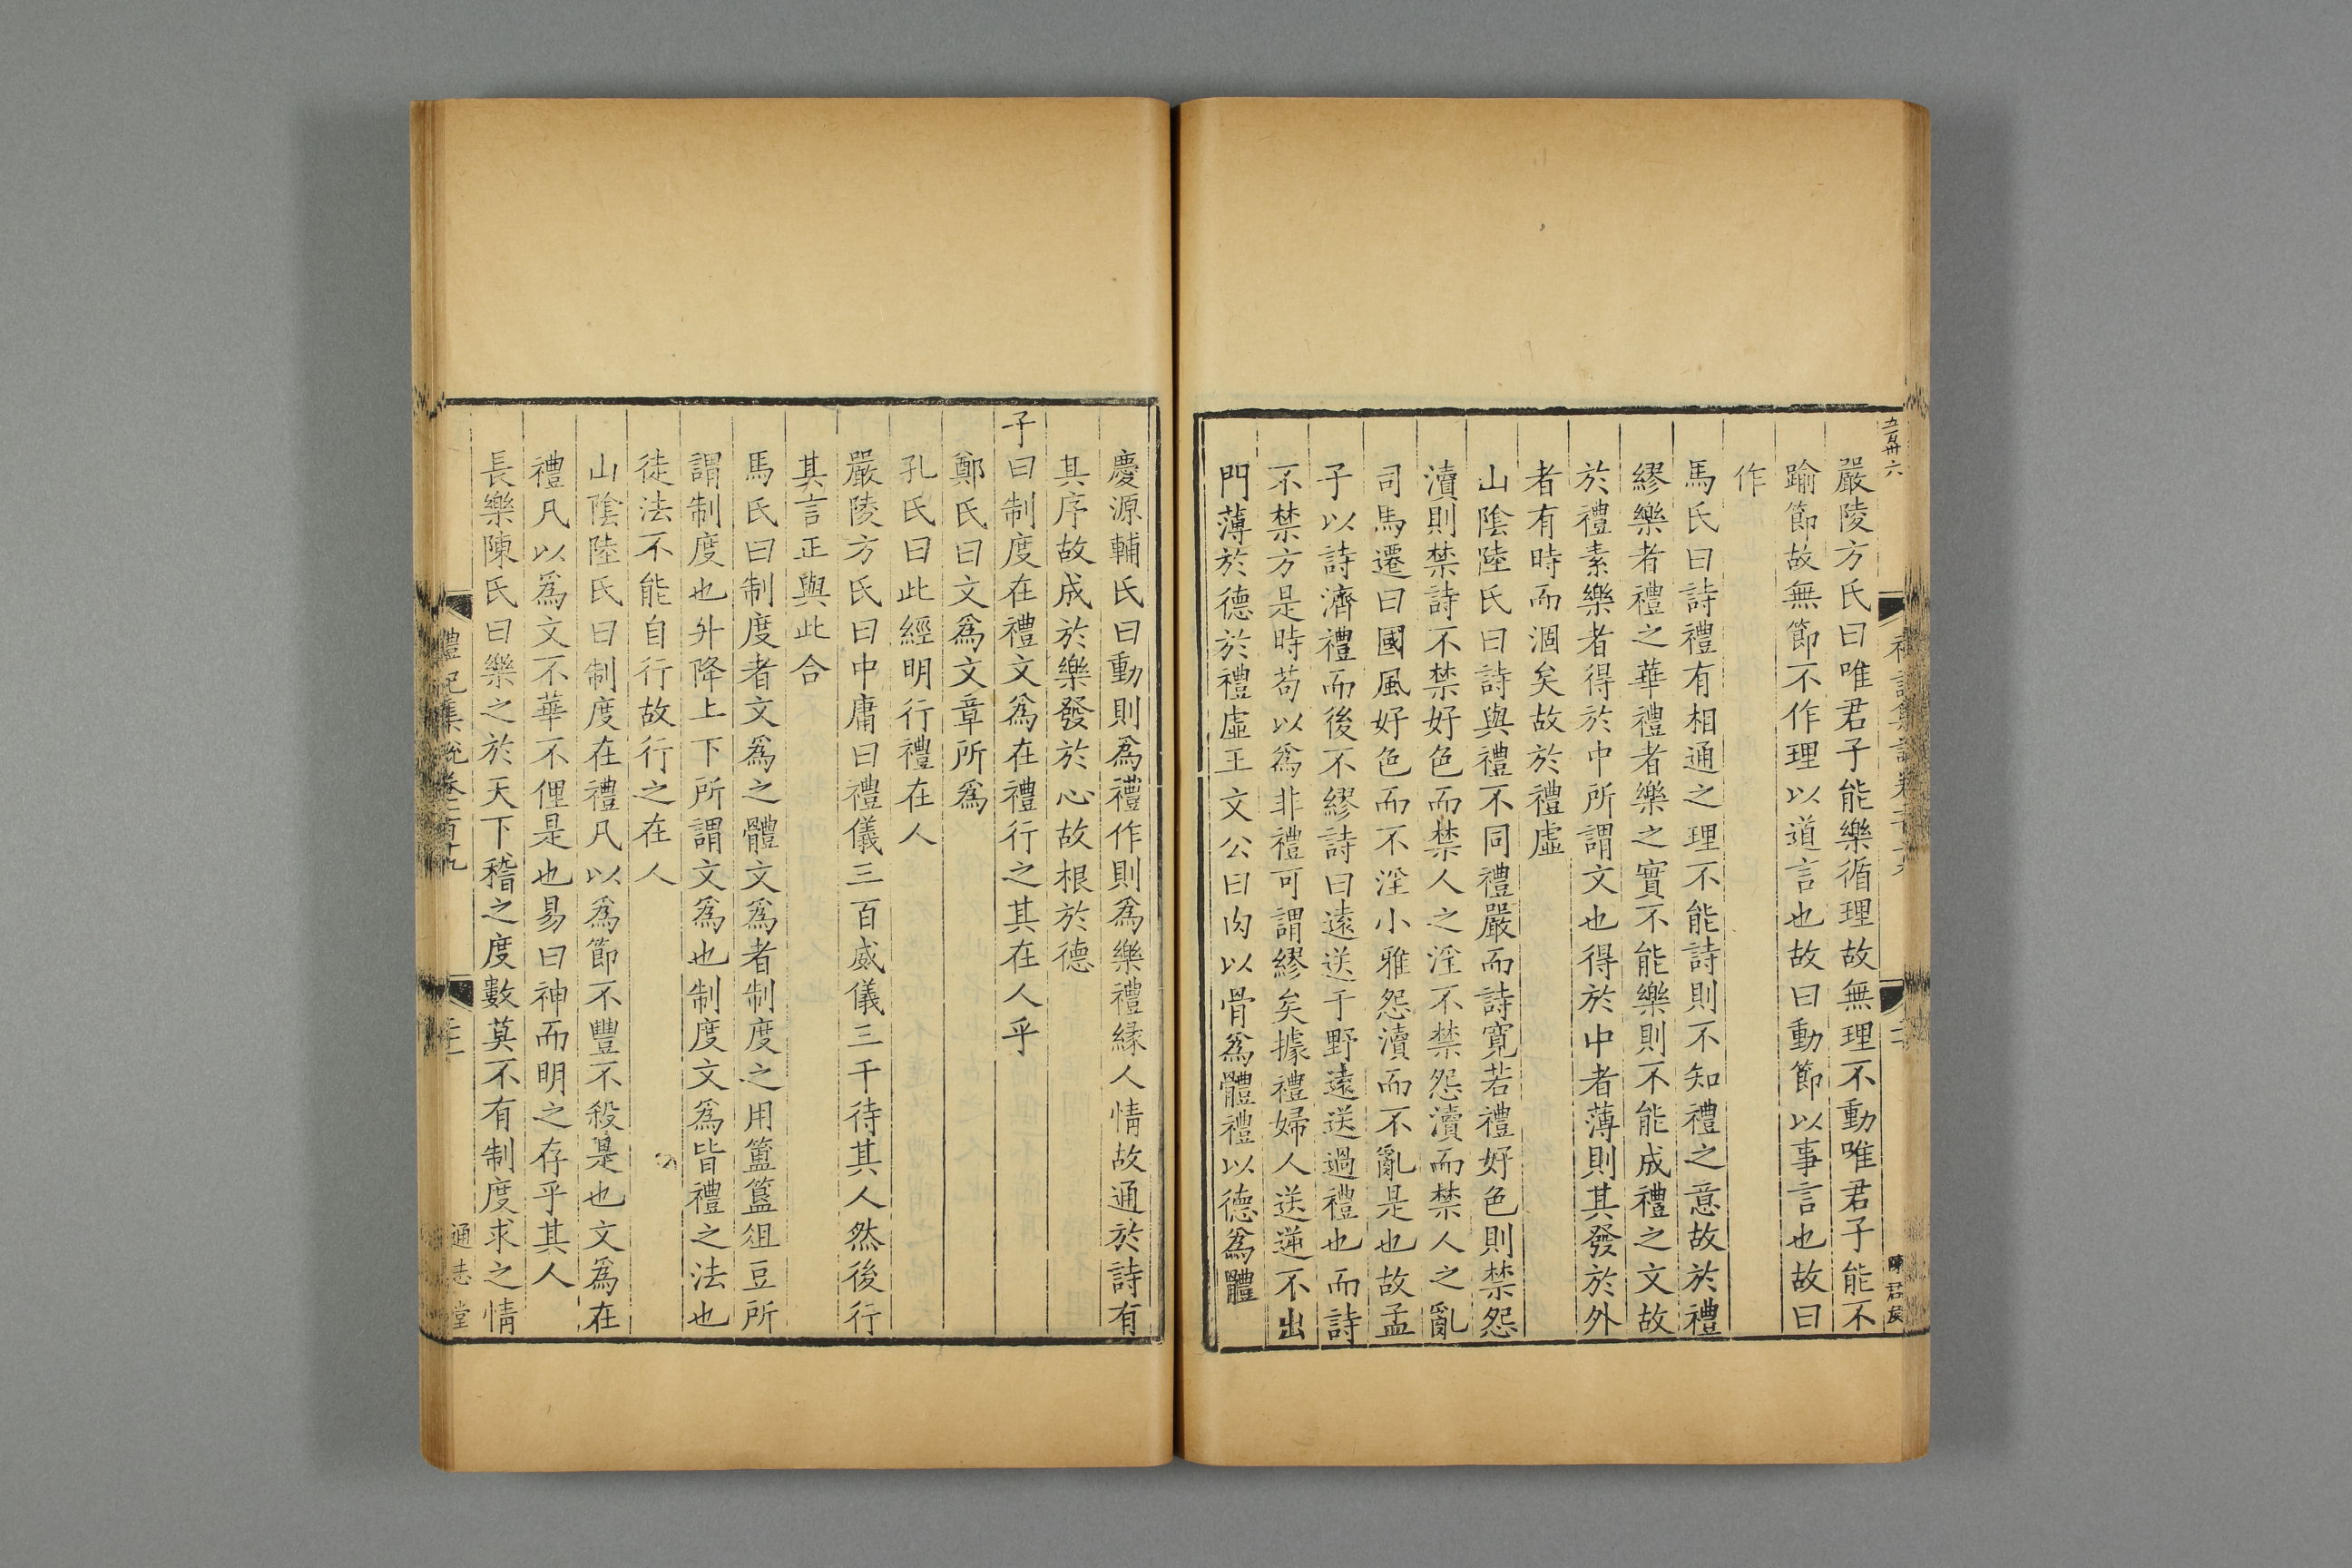 五百卅六
嚴陵方氏曰唯君子能樂循理故無理不動唯君子能不
踰節故無節不作理以道言也故曰動節以事言也故曰
作
馬氏曰詩禮有相通之理不能詩則不知禮之意故於禮
繆樂者禮之華禮者樂之實不能樂則不能成禮之文故
於禮素樂者得於中所謂文也得於中者薄則其發於外
者有時而涸矣故於禮虛
山陰陸氏曰詩與禮不同禮嚴而詩寬若禮好色則禁怨
瀆則禁詩不禁好色而禁人之淫不禁怨瀆而禁人之亂
司馬遷曰國風好色而不淫小雅怨瀆而不亂是也故孟
子以詩濟禮而後不繆詩曰遠送于野遠送過禮也而詩
不禁方是時苟以為非禮可謂繆矣據禮婦人送迎不出
門薄於德於禮虛王文公曰肉以骨為體禮以德為體
慶源輔氏曰動則為禮作則為樂禮緣人情故通於詩有
其序故成於樂發於心故根於德
子曰制度在禮文為在禮行之其在人乎
鄭氏曰文為文章所為
孔氏曰此經明行禮在人
嚴陵方氏曰中庸曰禮儀三百威儀三千待其人然後行
其言正與此合
馬氏曰制度者文為之體文為者制度之用簠簋俎豆所
謂制度也升降上下所謂文為也制度文為皆禮之法也
徒法不能自行故行之在人
山陰陸氏曰制度在禮凡以為節不豐不殺是也文為在
禮凡以為文不華不俚是也易曰神而明之存乎其人
長樂陳氏曰樂之於天下稽之度數莫不有制度求之情
禮記集說卷一百十九
通志堂